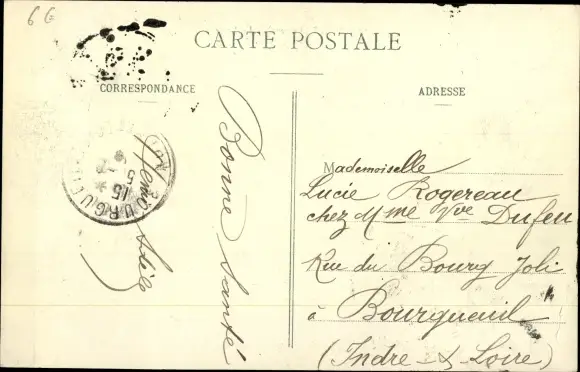 6 6
CARTE POSTALE
CORRESPONDANCE
ADRESSE
Bonne santé
Mademoiselle
Lucie Rogereau
chez Mme Vve Dufeu
Rue du Bourg Joli
à Bourgueil
(Indre-&-Loire)
15
5